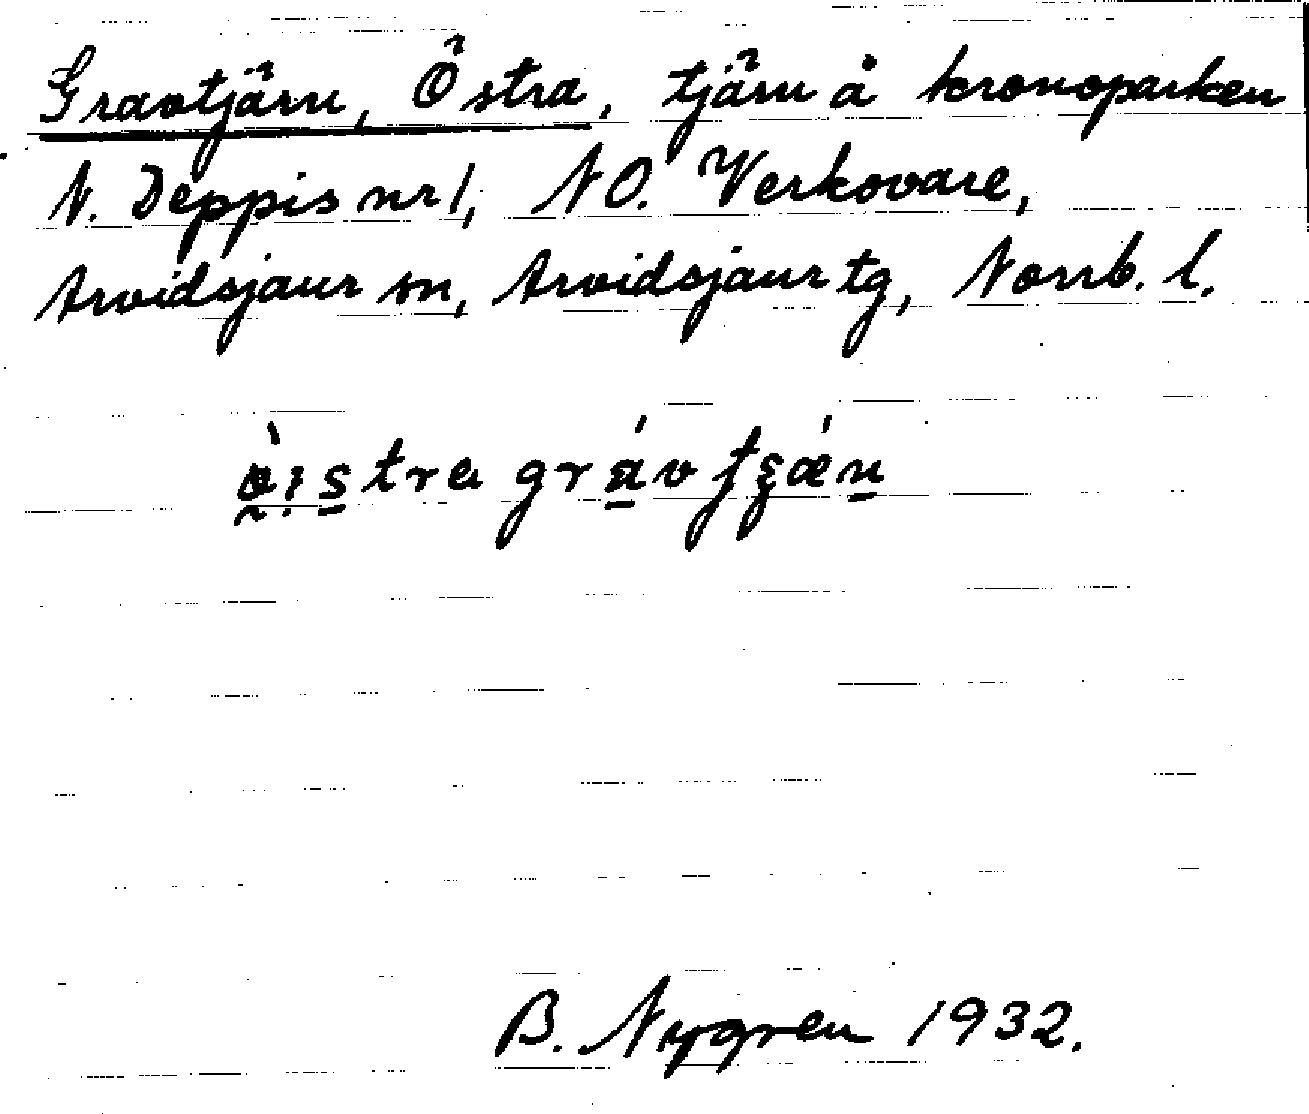 Gravtjärn, Östra, tjärn å kronoparken
N. Deppis nr 1, NO. Verkovare,
Arvidsjaur sn, Arvidsjaur tg, Norrb. l.
östra grávtʃǽn
B. Nygren 1932.